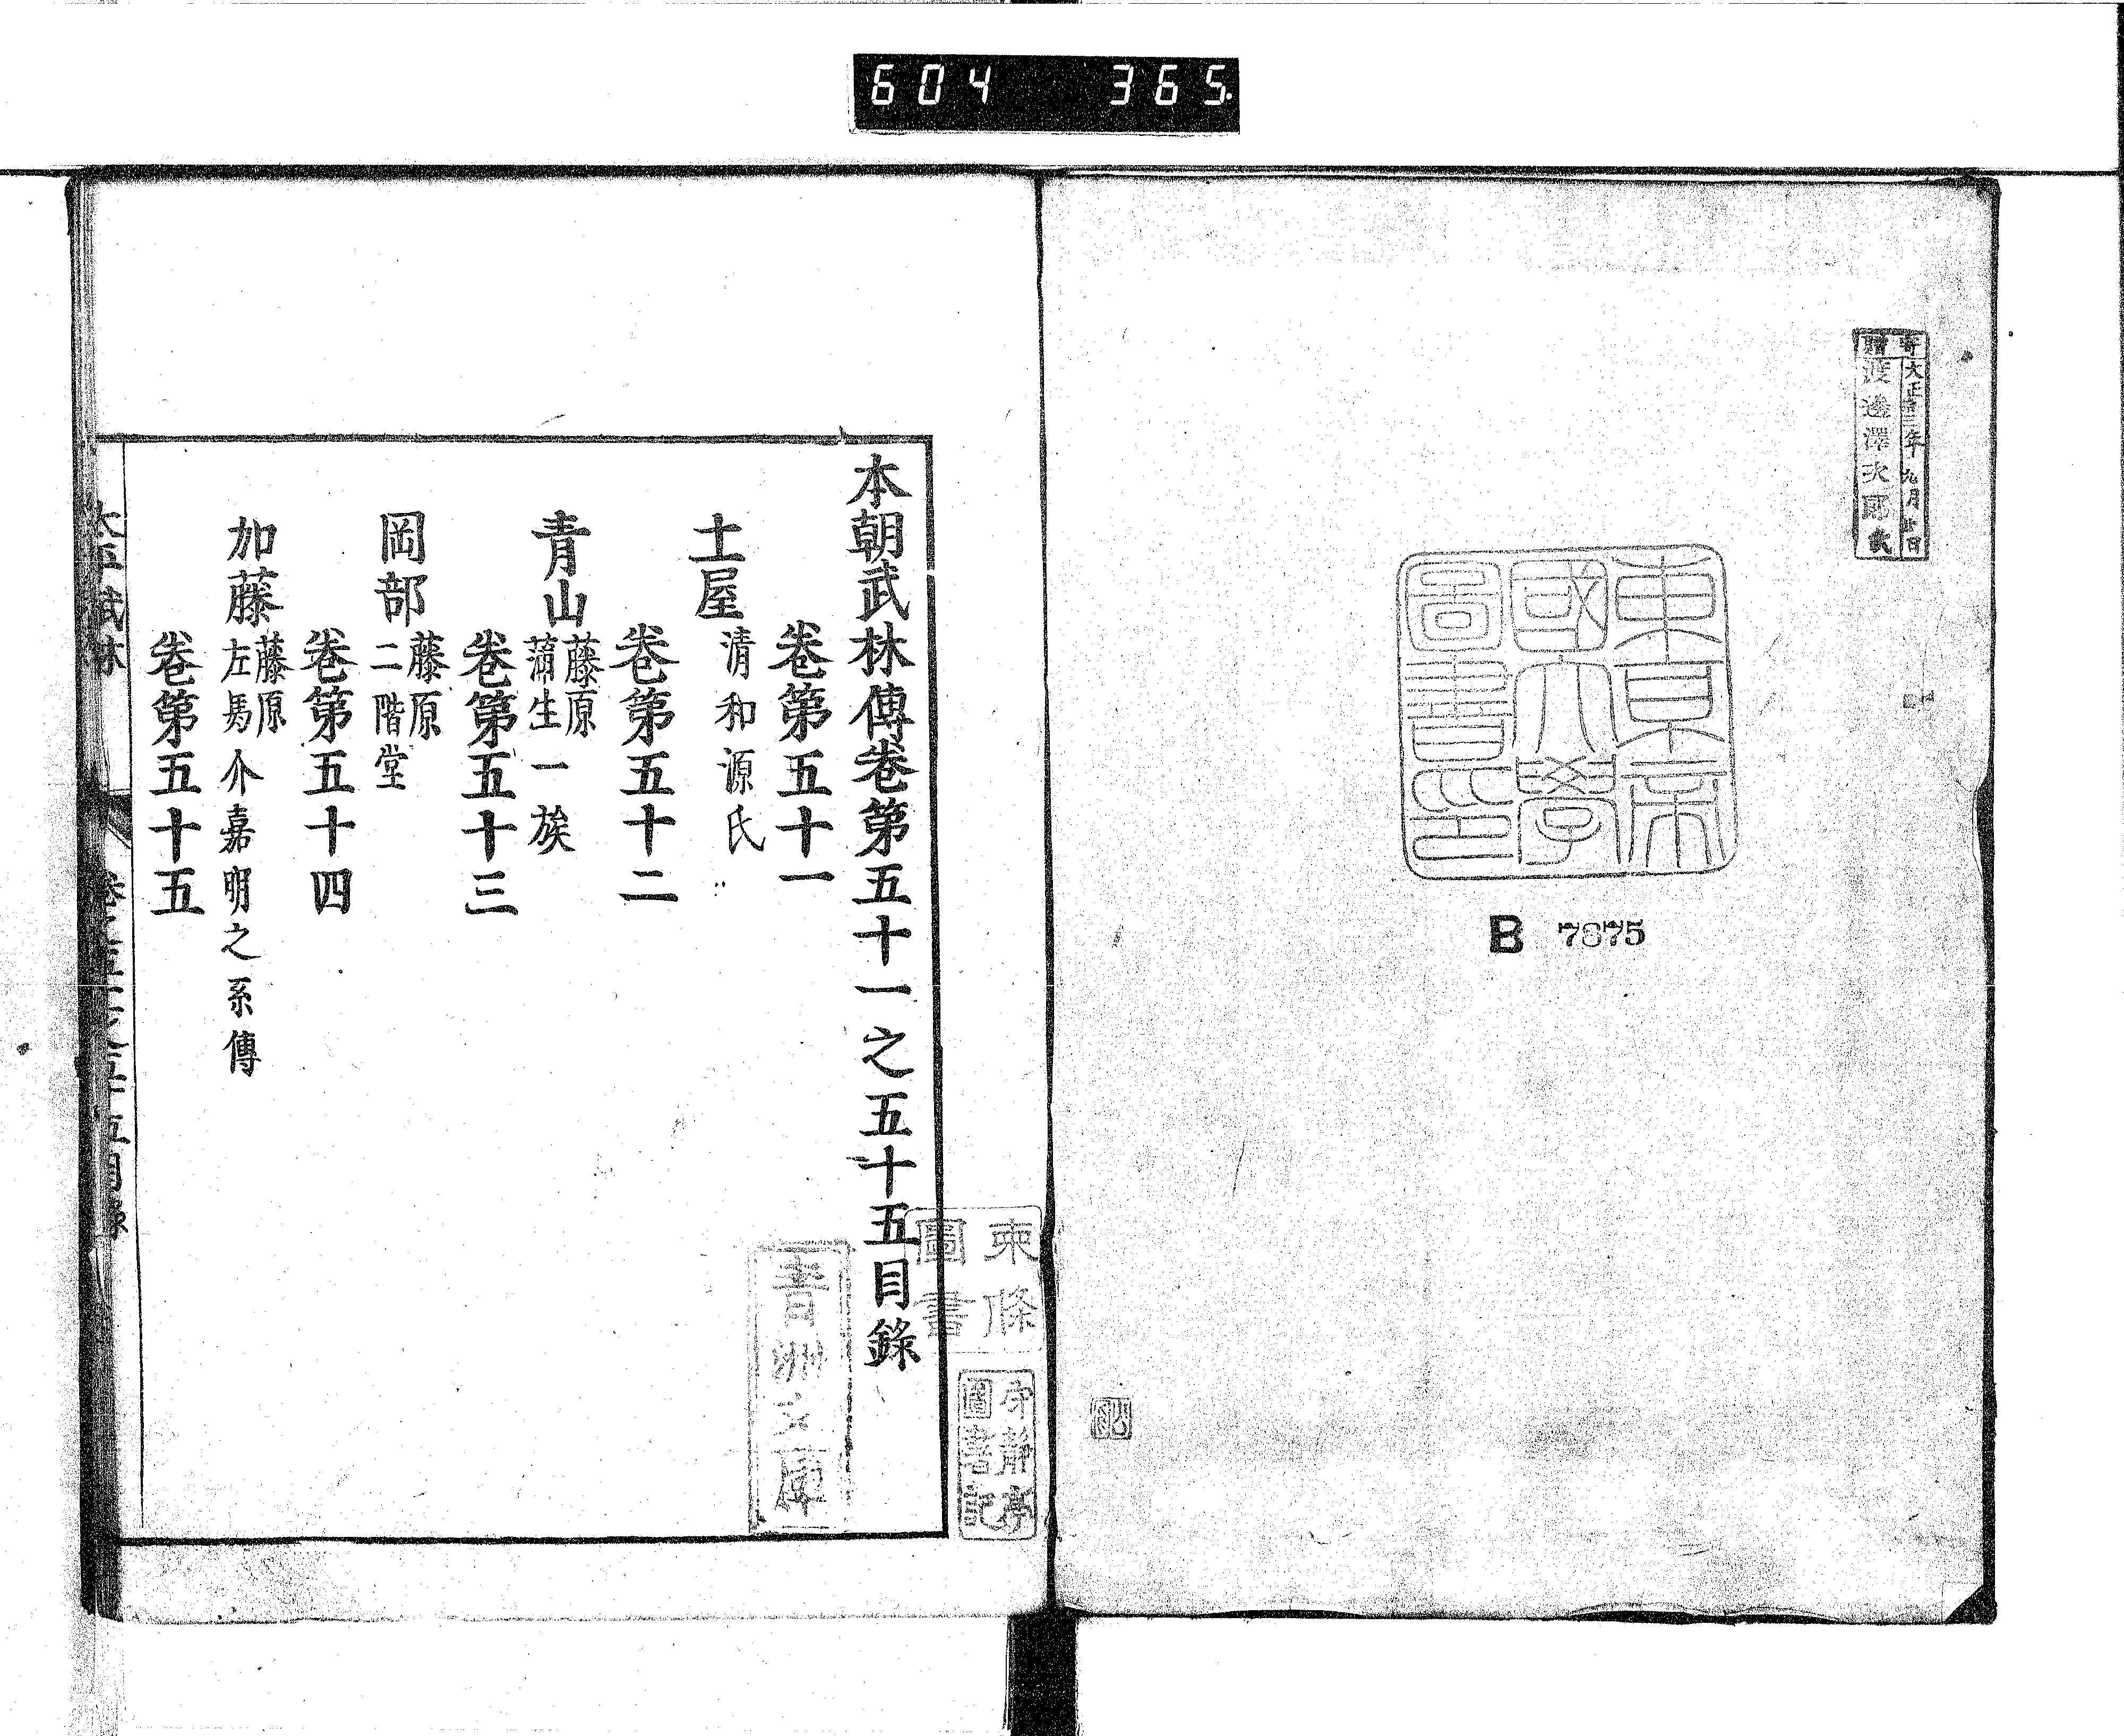 604 365
寄贈
大正十三年九月
渡邊澤次郎氏
東京帝
國大學
圖書印
B 7875
本朝武林傳卷第五十一之五十五目錄
卷第五十一
土屋 清和源氏
卷第五十二
青山 藤原 蒲生一族
卷第五十三
岡部 藤原 二階堂
卷第五十四
加藤 藤原 左馬介嘉明之系傳
卷第五十五
東條
圖書
守靜亭
圖書記
青洲文庫